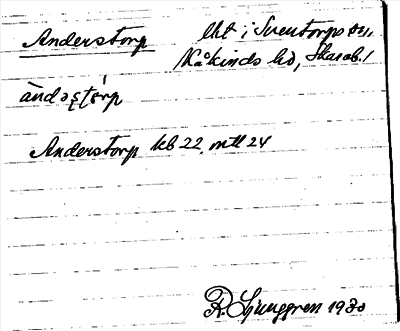 Anderstorp lht i Sventorps sn,
Kåkinds hd, Skarab. l
àndəʂʈórp
Anderstorp kb 22, mtl 24
R. Ljunggren 1930